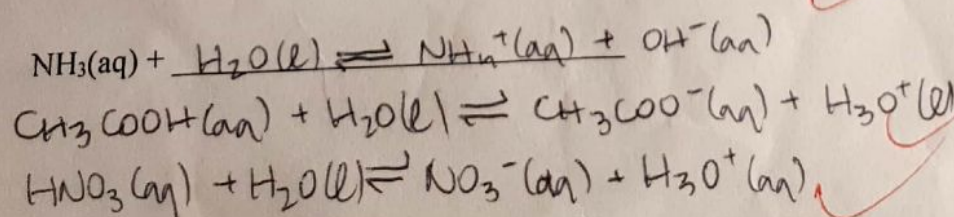 NH₃(aq) + H₂O(l) ⇌ NH₄⁺(aq) + OH⁻(aq)
CH₃COOH(aq) + H₂O(l) ⇌ CH₃COO⁻(aq) + H₃O⁺(l)
HNO₃(aq) + H₂O(l) ⇌ NO₃⁻(aq) + H₃O⁺(aq)